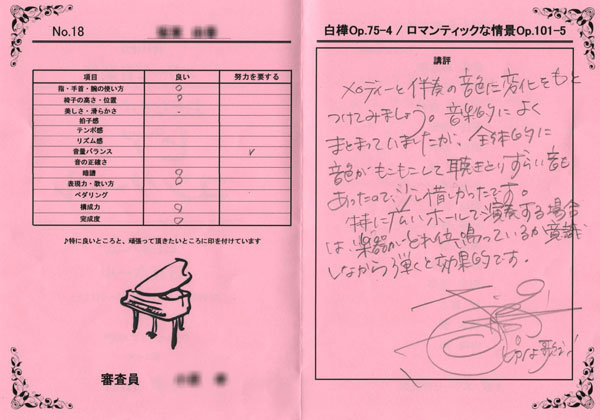 No.18
項目 良い 努力を要する
指・手首・腕の使い方 ○
椅子の高さ・位置 ○
美しさ・滑らかさ
拍子感
テンポ感
リズム感
音量バランス ✓
音の正確さ
暗譜 ○
表現力・歌い方 ○
ペダリング
構成力 ○
完成度 ○
♪特に良いところと、頑張って頂きたいところに印を付けています
審査員
白樺Op.75-4 / ロマンティックな情景Op.101-5
講評
メロディーと伴奏の音色に変化をもっと
つけてみましょう。音楽的によく
まとまっていましたが、全体的に
音色がもこもこして聴きとりずらい音も
あったので、少し惜しかったです。
特に広いホールで演奏する場合
は、楽器がどれ位鳴っているか意識
しながら弾くと効果的です。